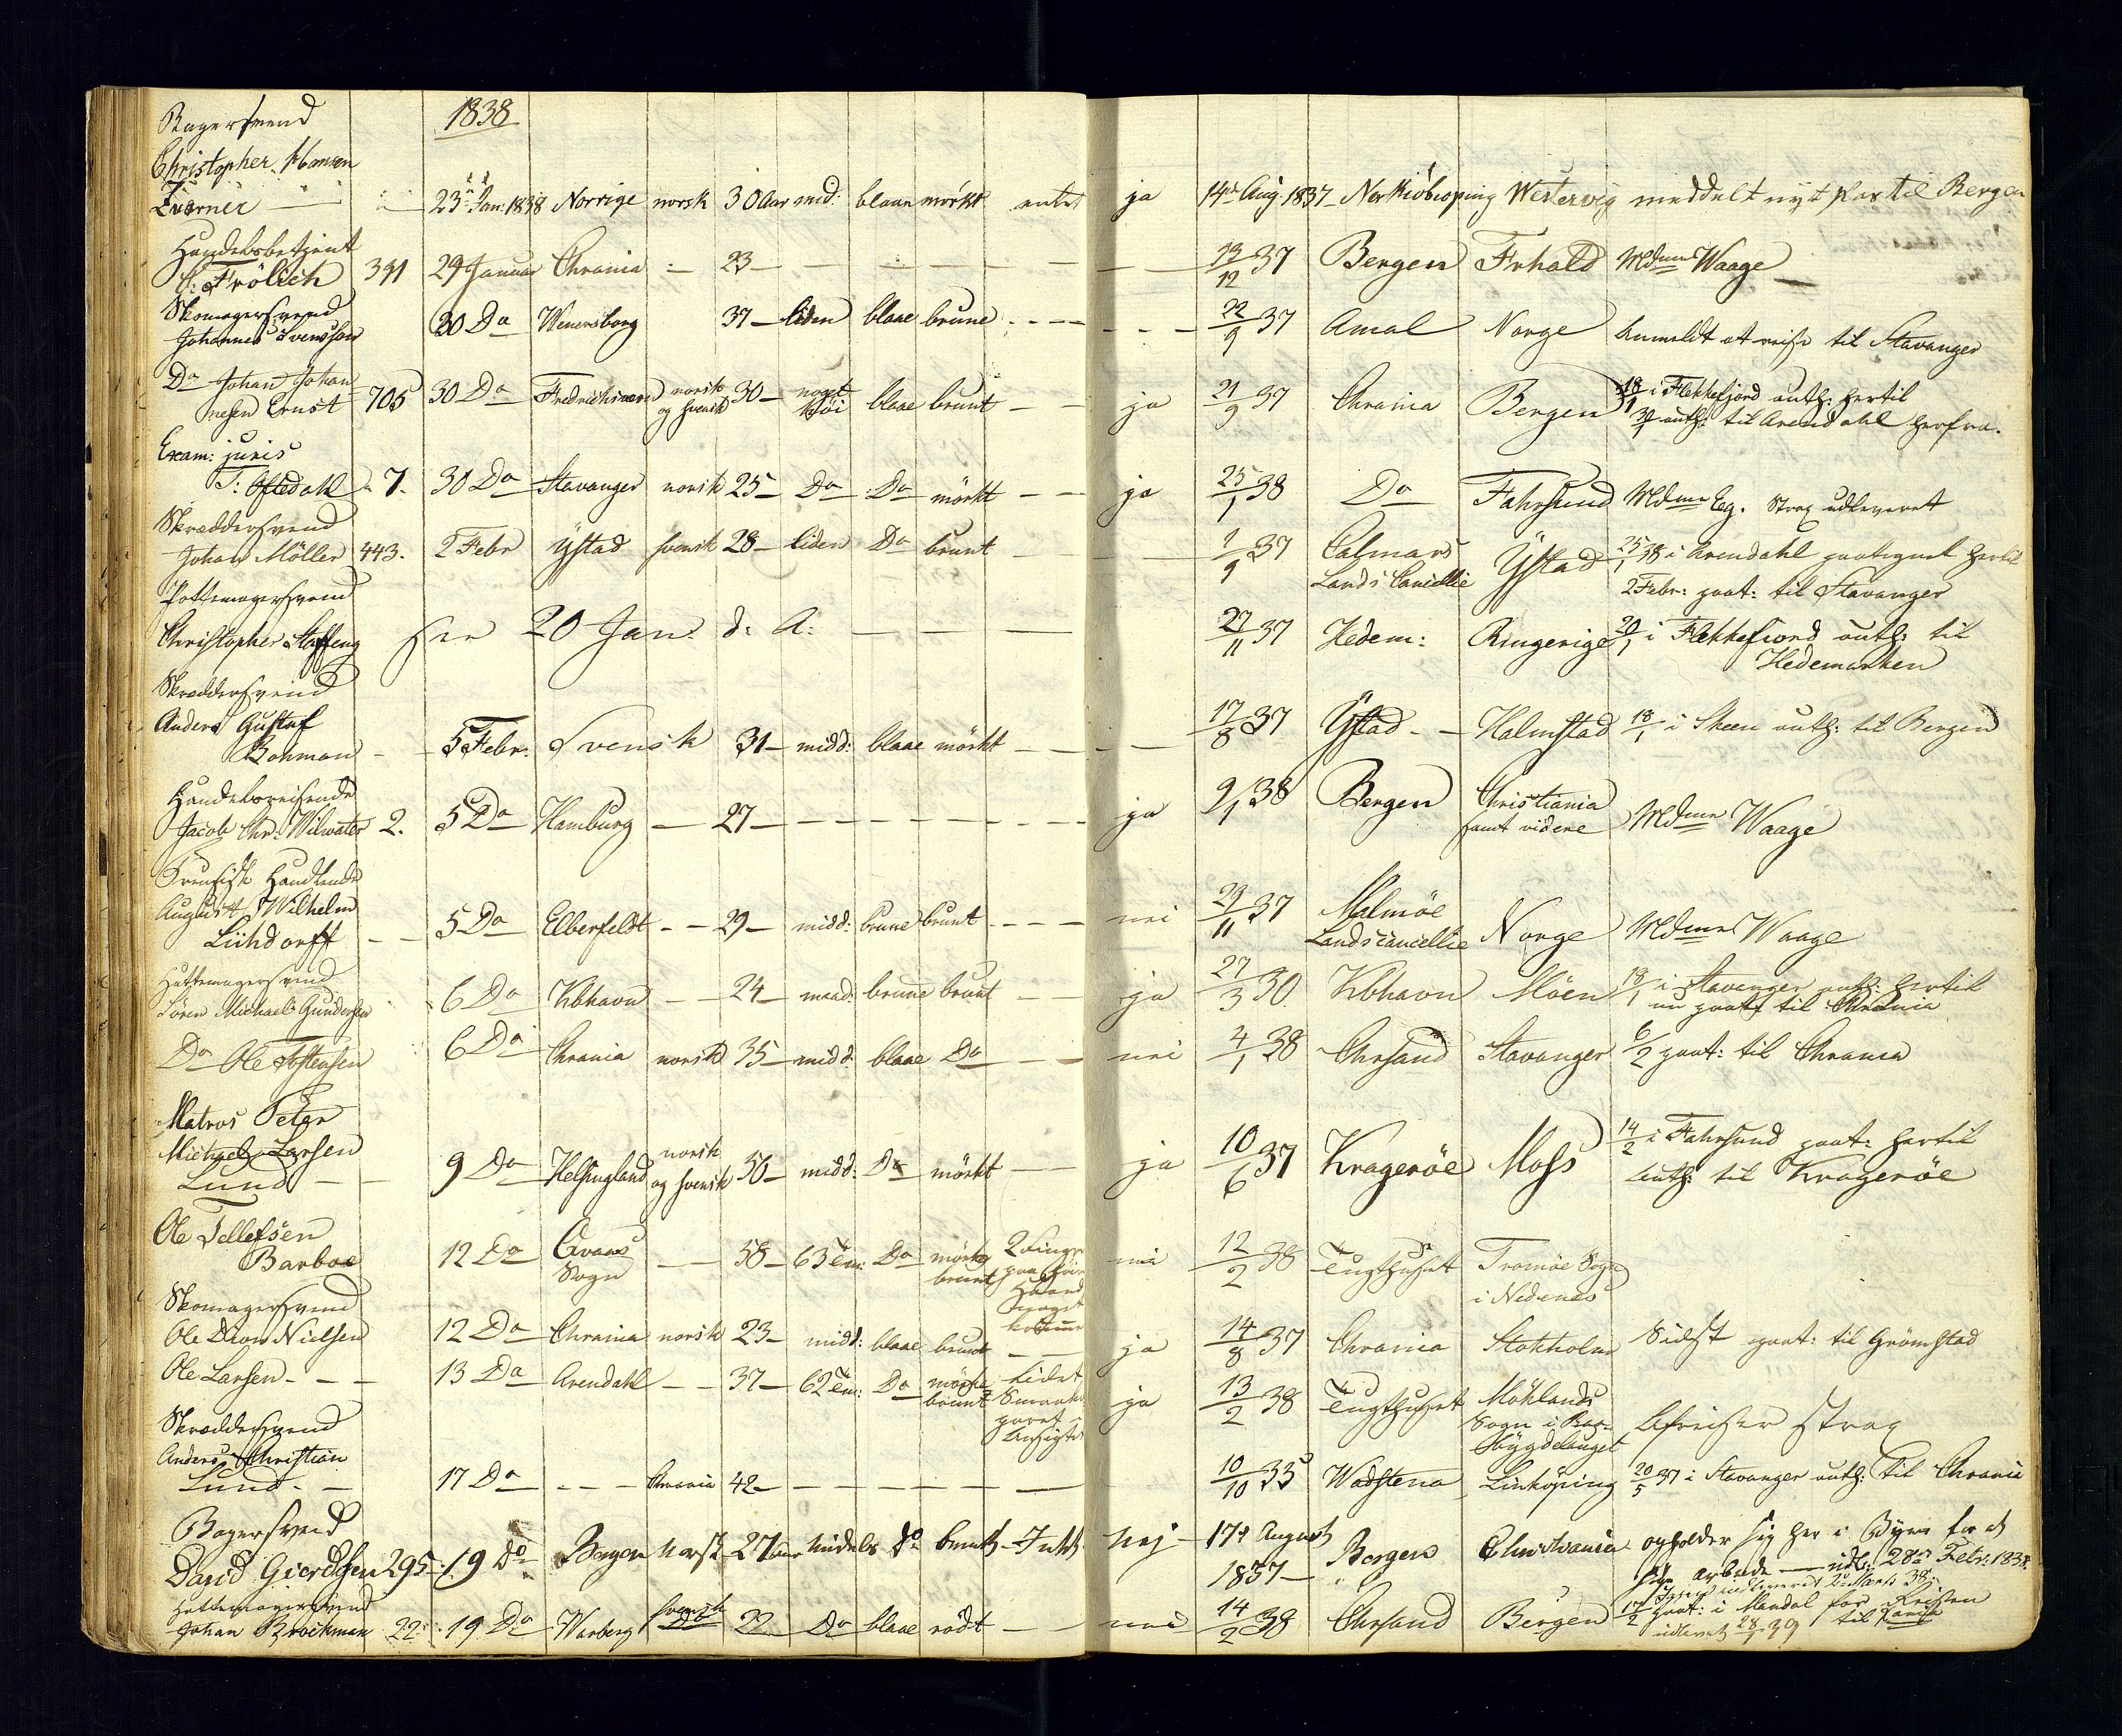 1838
Bagersvend
Christopher Hansen
Zvorner 23 Jan: 1838 Norrige norsk 30 Aar mid: blaae mörkt intet ja 14de Aug 1837 Norkiöbioping Westervig meddelt nyt Pas til Bergen
Handelsbetjent
C: Frölich 391 29 Januar Chrania — 23 — 19/12 37 Bergen Frhald Mdme Waage
Skomagersvend
Johannes Svensson 30 Do Wenersborg 37 — liden blaae brune 22/9 37 Amal Norge Anmeldt at reise til Stavanger
Do Johan Johan
nesen Ernst 705 30 Do Fredrichsværn norsk og svensk 30 — noget höi blaae brunt — ja 21/9 37 Chrania Bergen 18/1 i Flekkefjord auth: hertil
30/1 auth: til Arendahl herfra.
Exam: juris
T: Oftedahl 7. 30 Do Stavanger norsk 25 — Do Do mörkt — ja 25/1 38 Do Fahrsund Mdme Eeg. Strax udleveret
Skræddersvend
Johan Möller 443. 2 Febr Ystad svensk 28 — liden Do brunt — 1/9 37 Calmars Lands Cancellie Ystad 25/1 38 i Arendahl paategnet hertil
2 Febr: paat: til Stavanger
Pottemagersvend
Christopher Staffeng see 20 Jan: d: A: — 27/11 37 Hedem: Ringerige 20/1 i Flekkefiord auth: til
Hedemarken
Skræddersvend
Anders Gustaf
Bohman — 5 Febr: Svensk 31 — midd: blaae mörkt — 17/8 37 Ystad — Halmstad 18/1 i Skeen auth: til Bergen
Handelsreisende
Jacob Chr: Wilwater 2. 5 Do Hamburg — 27 — ja 9/1 38 Bergen Christiania samt videre Mdme Waage
Preusisk Handlende
August Wilhelm
Lühdorff — 5 Do Elberfeldt — 29 — midd: brune brunt — nei 29/11 37 Malmöe Landscancellie Norge Mdme Waage
Hattemagersvend
Sören Michael Gundersen 6 Do Kbhavn — 24 — maad: brune brunt — ja 27/3 30 Kbhavn Möen 19/1 i Stavanger auth: hertil
nu paat: til Chrania
Do Ole Tostensen 6 Do Chrania norsk 35 — midd: blaae Do — nei 4/1 38 Chrsand Stavanger 6/2 paat: til Chrania
Matros Peter
Michael Larsen
Lund — 9 Do Helsingland norsk og svensk 56 — midd: Do mörkt — ja 10/6 37 Kragerøe Moss 14/2 i Fahrsund paat: hertil
auth: til Kragerøe
Ole Tellefsen
Barboe 12 Do Sogn — 58 — 63 Do mörke brunt 2 Finger paa höire Haand noget krumme nei 12/2 38 Tugthuset Tromöe Sogn i Nedenes
Skomagersvend
Ole Nielsen 12 Do Chrania norsk 23 — midd: blaae brunt — ja 14/8 37 Chrania Stokholm Sidst paat: til Grömstad
Ole Larsen — 13 Do Arendahl — 37 — 62 Do mörke brunt Lidet Ansigtet ja 13/2 38 Tugthuset Möklands Sogn i Afreiser strax
Skræddersvend
Anders Christian
Lund — 17 Do — Chrania 42 — 10/10 35 Wadstena Linköping 20/5 37 i Stavanger auth: til Chrania
Bagersvend
David Giertsen 295 19 Do Bergen Norsk 27 Aar Midels Do brunt Intet Nej 17de August 1837 Bergen Christiania opholder sig her i Byen for at
søge Arbeide — udl: 28de Febr: 1838
Hattemagersvend
Johan Brockman 22 19 Do Warberg svensk 22 Do blaae rödt — nei 14/2 38 Chrsand Bergen 17/2 paat: i Mandal for Reisen
til